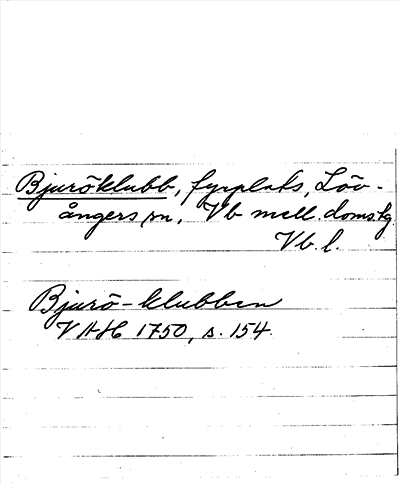 Bjuröklubb, fyrplats, Löv-
ångers sn, Vb mell. doms.tg
Vb. l.
Bjurö-klubben
VAH 1750, s. 154.